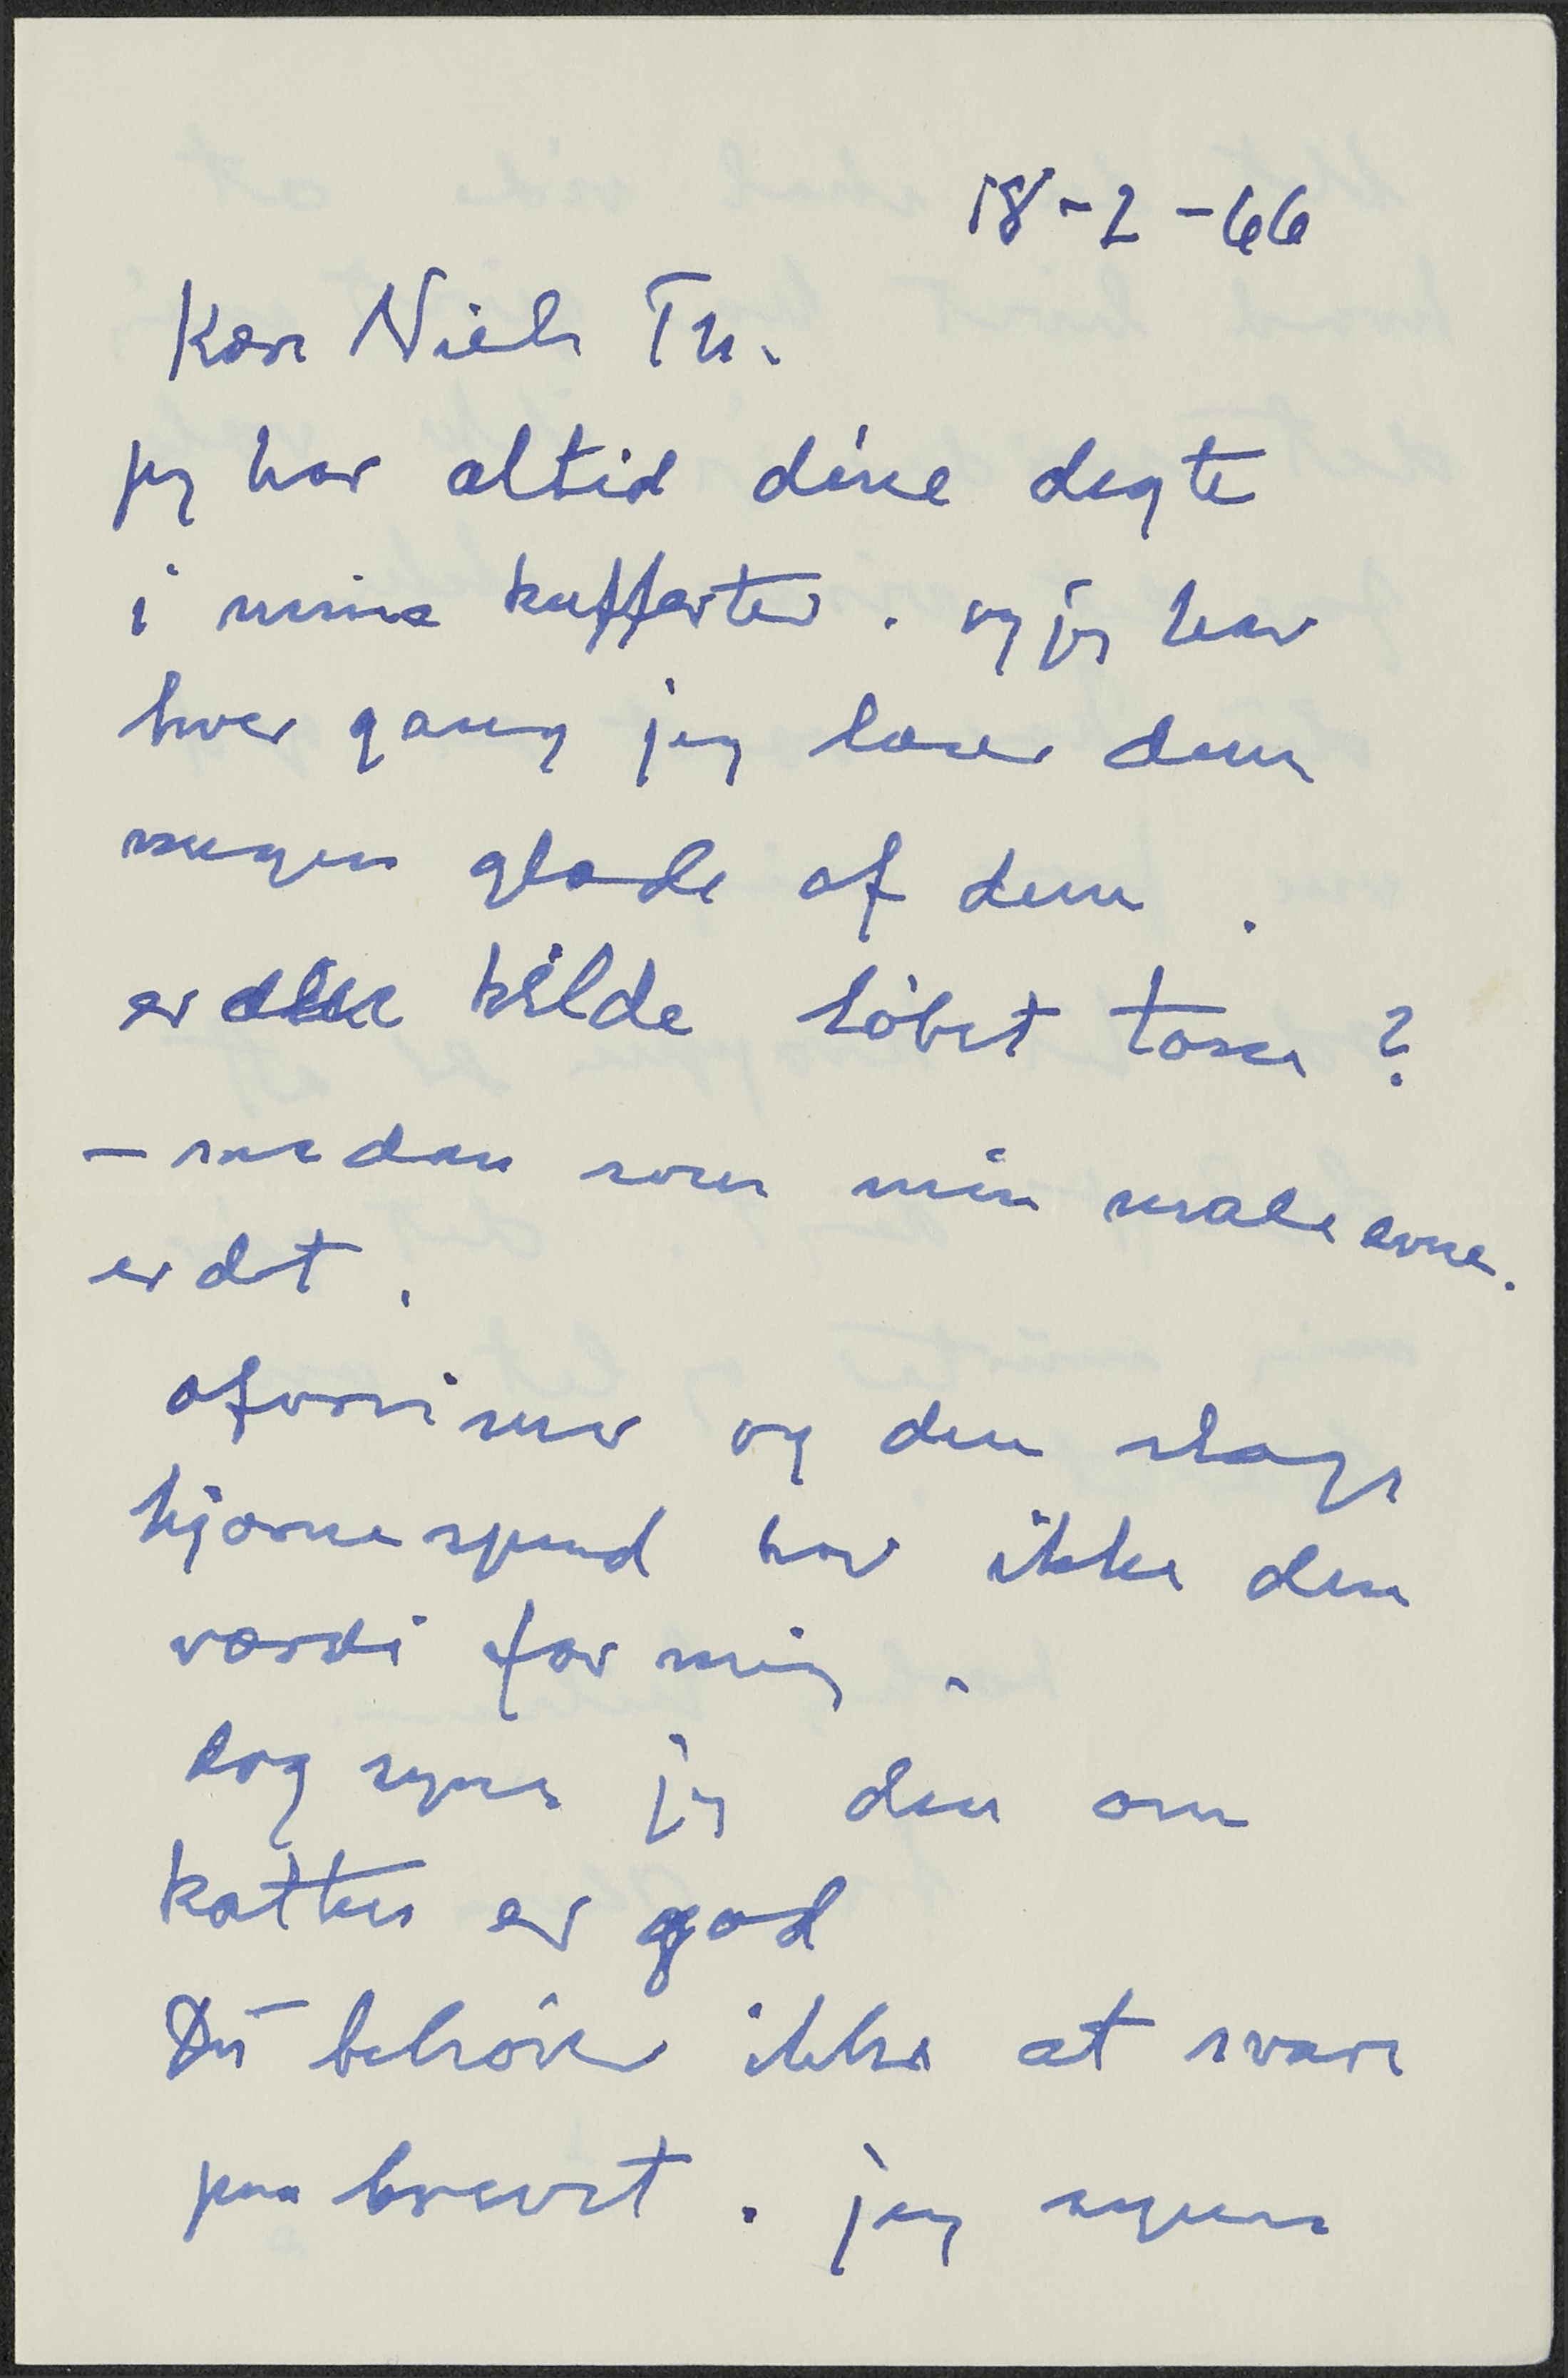 18-2-66
Kære Niels Th.
jeg har altid dine digte
i mine kufferter. og jeg har
hver gang jeg læser dem
megen glæde af dem.
er den kilde løbet tør ?
— saadan som min maleevne.
er det.
aforismer og den slags
hjernespind har ikke den
værdi for mig.
dog synes jeg den om
katten er god
Du behøver ikke at svare
paa brevet. jeg synes